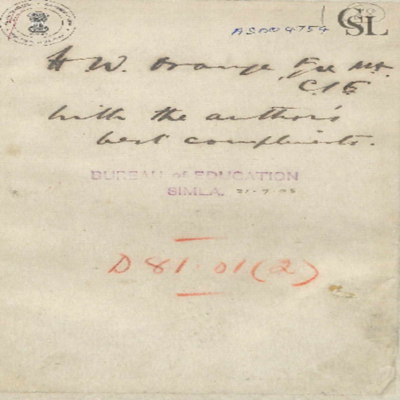 ASDO 9754
CSL
H W. Orange, Esq M.A.
C.I.E
with the author's
best compliments.
BUREAU of EDUCATION
SIMLA. 21-7-05
D 81 01 (2)